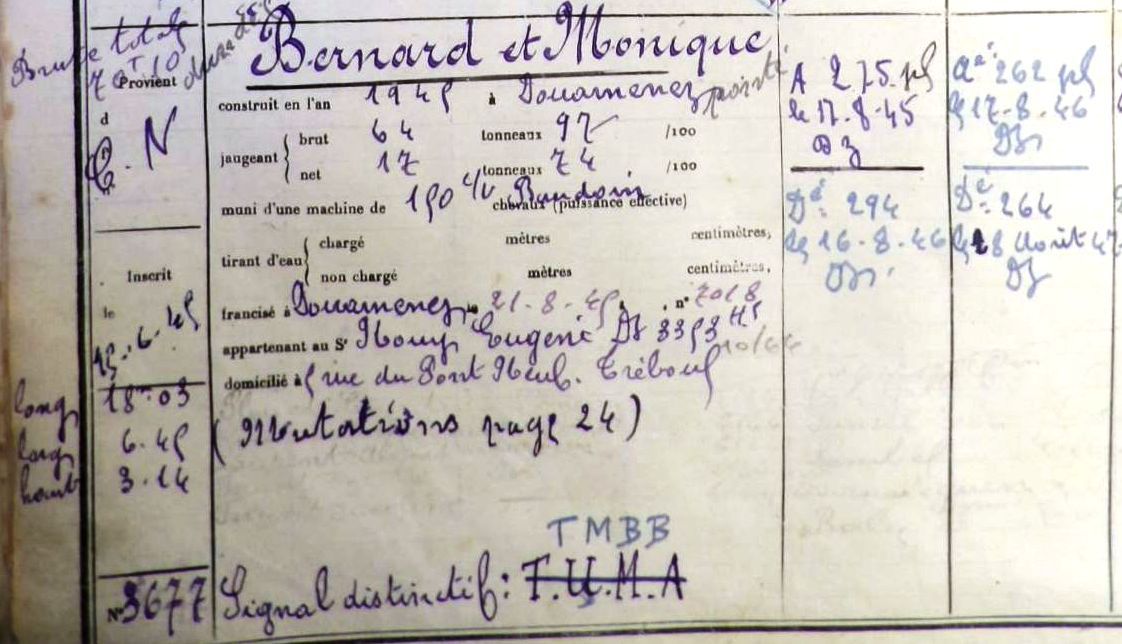 Bernard et Monique
Brute totale
70 T 10
Provient
d
C. N
construit en l'an 1945 à Douarnenez
jaugeant { brut 64 tonneaux 97 /100
net 17 tonneaux 74 /100
muni d'une machine de 150 c/v Baudoin chevaux (puissance effective)
tirant d'eau { chargé mètres centimètres,
non chargé mètres centimètres,
Inscrit
le 15.6.45
francisé à Douarnenez le 21-8-45, n° 7018
appartenant au Sr Eugène Dz 3353
domicilié à 5 rue du Pont Neuf. Tréboul
(Mutations page 24)
long 18m.03
larg 6.45
haut 3.14
TMBB
N° 3677
Signal distinctif: T.U.M.A
A 275 pl
le 17.8.45
Dz
Dé 294
le 16-8-46
Dz
Aé 262 pl
le 17-8-46
Dz
Dé 264
le 18 Août 47
Dz